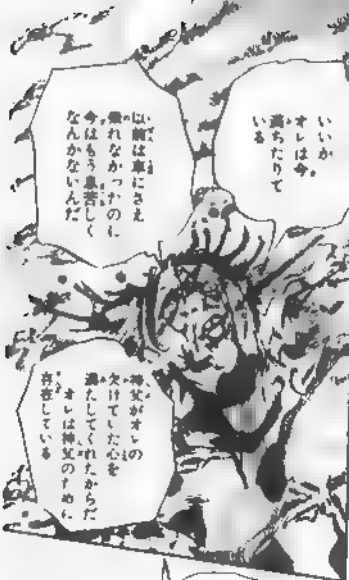 いいか
オレは今
満ちたりて
いる
以前は車にさえ
乗れなかったのに
今はもう息苦しく
なんかないんだ
神父がオレの
欠けていた心を
満たしてくれたからだ
オレは神父のために
存在している